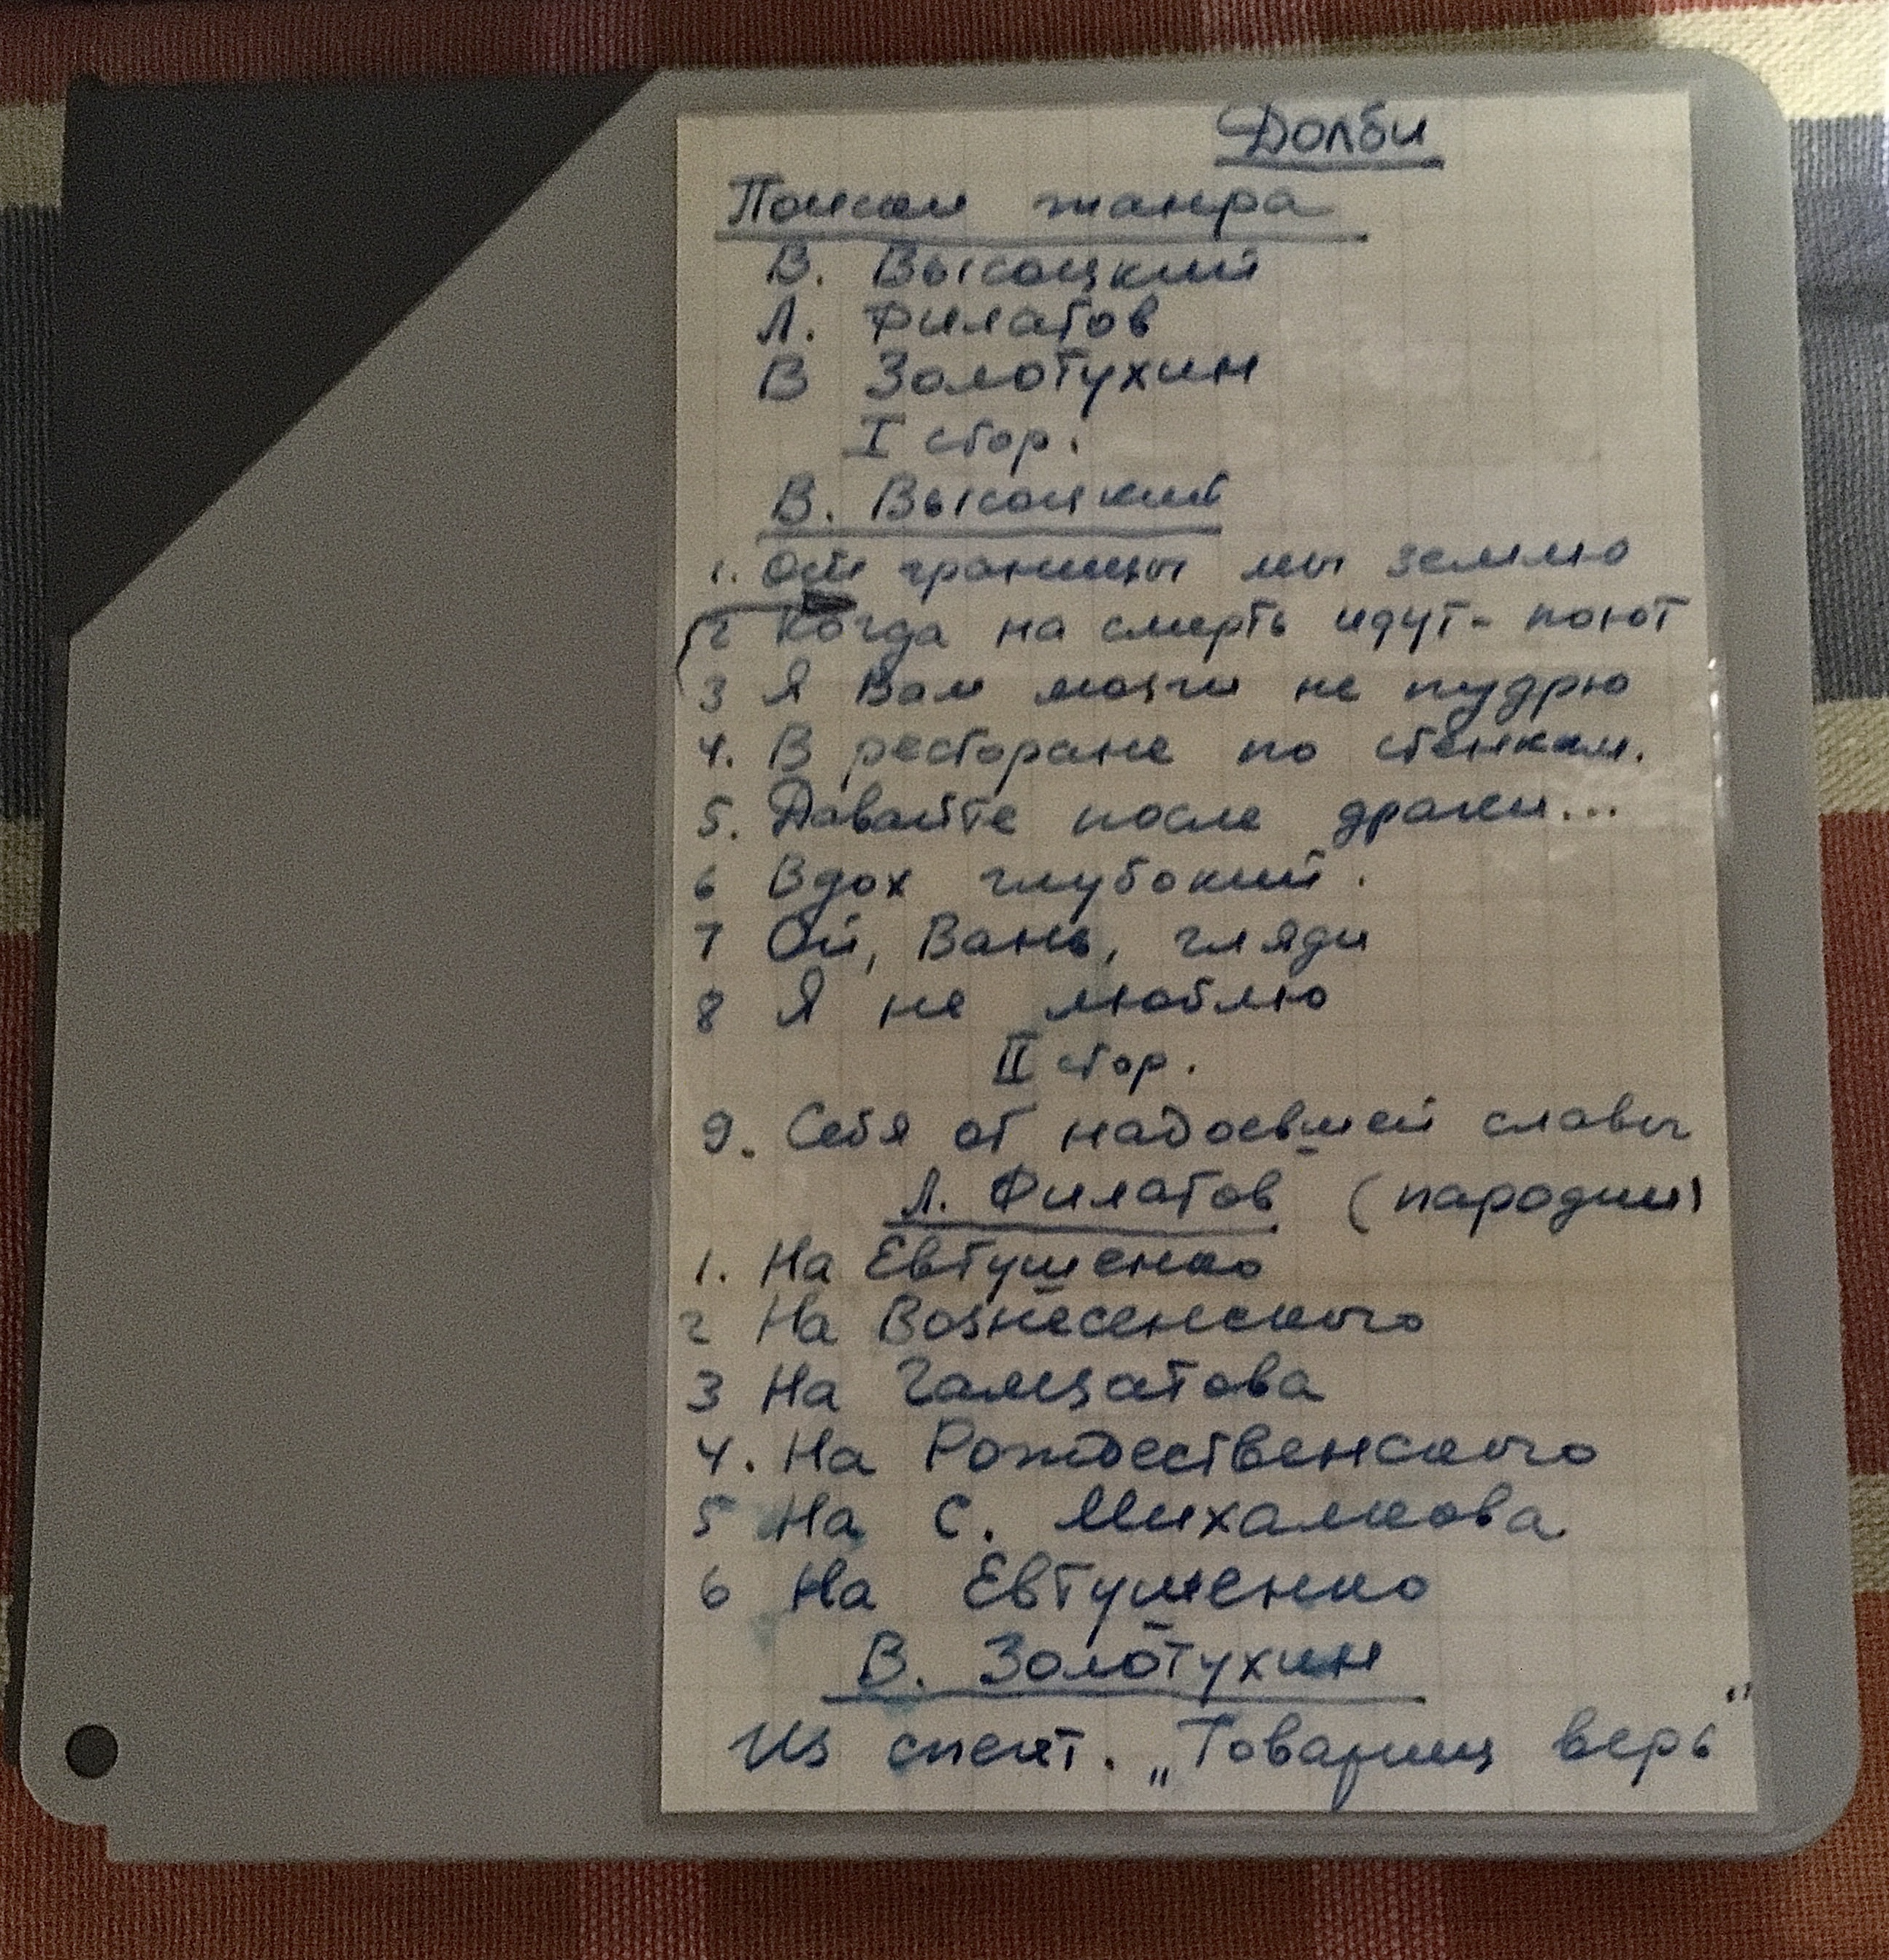 Долби
Поиски жанра
В. Высоцкий
Л. Филатов
В Золотухин
I стор.
В. Высоцкий
1. От границы мы землю
2 Когда на смерть идут - поют
3 Я Вам мозги не пудрю
4. В ресторане по стенкам.
5. Давайте после драки...
6 Вдох глубокий.
7 Ой, Вань, гляди
8 Я не люблю
II стор.
9. Себя от надоевшей славы
Л. Филатов (пародии)
1. На Евтушенко
2 На Вознесенского
3 На Гамзатова
4. На Рождественского
5 На С. Михалкова
6 На Евтушенко
В. Золотухин
Из спект. „Товарищ верь"